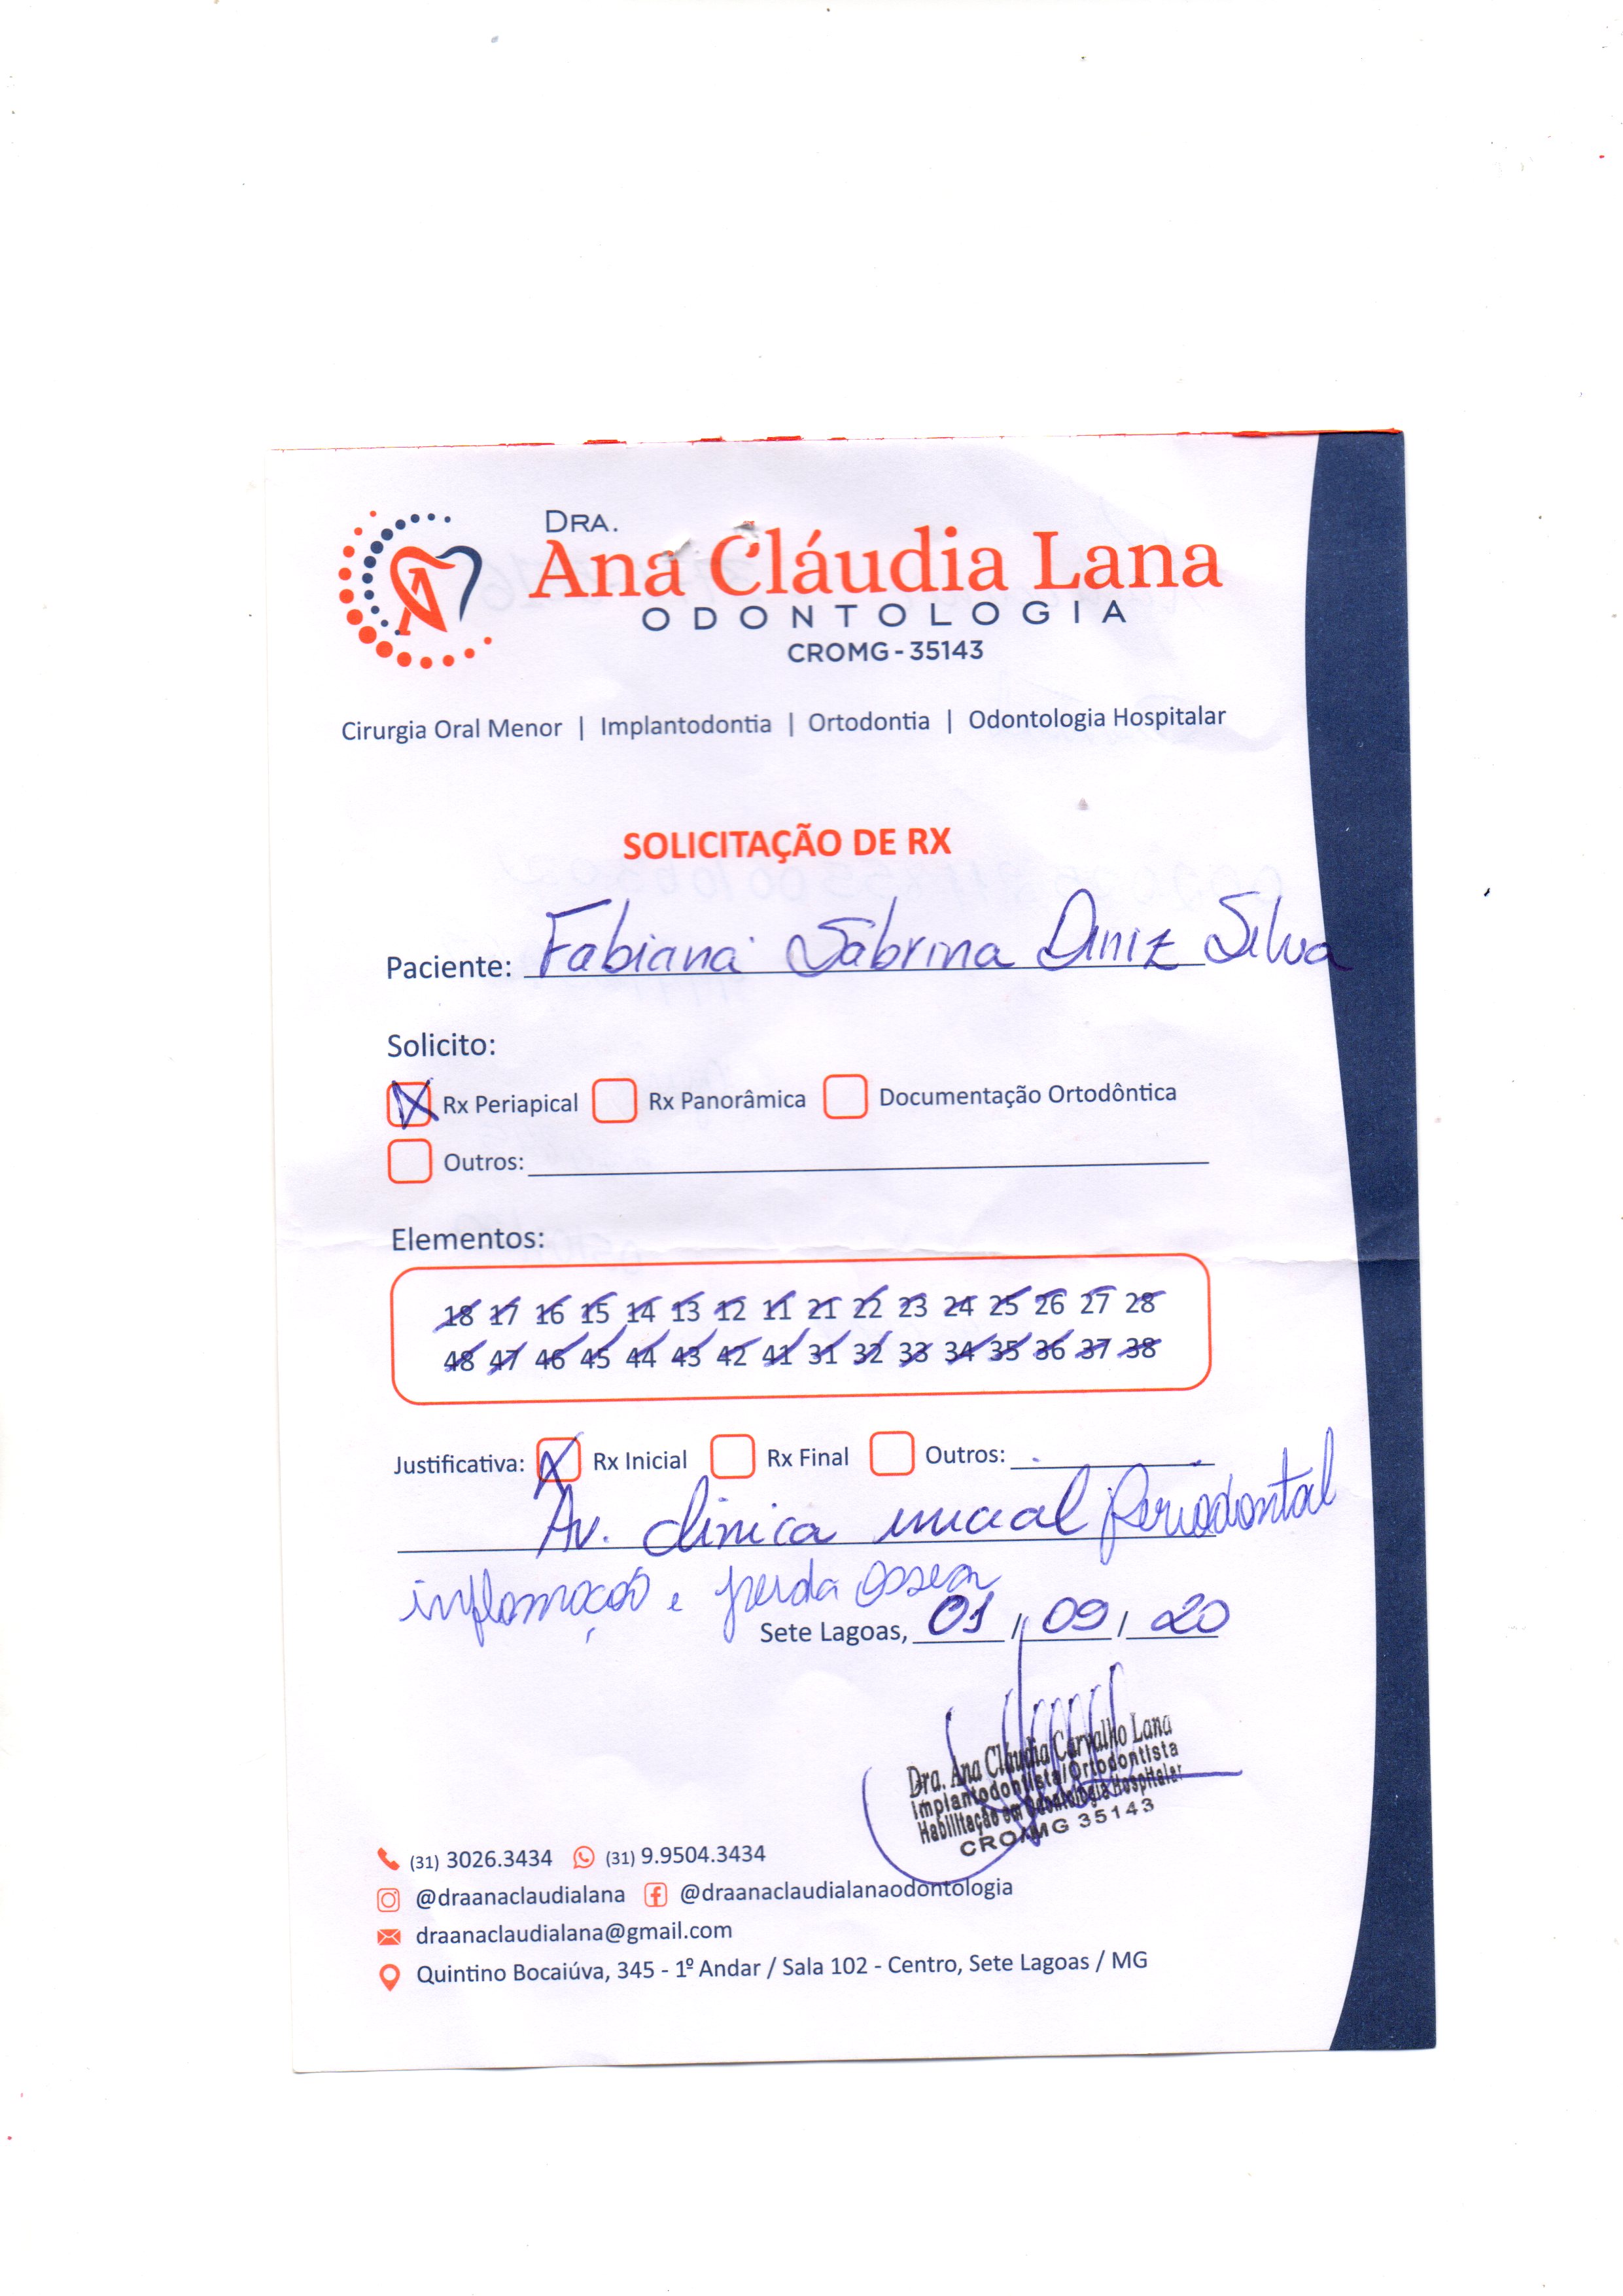 DRA.
Ana Cláudia Lana
ODONTOLOGIA
CROMG - 35143
Cirurgia Oral Menor | Implantodontia | Ortodontia | Odontologia Hospitalar
SOLICITAÇÃO DE RX
Paciente: Fabiana Sabrina Diniz Silva
Solicito:
Rx Periapical Rx Panorâmica Documentação Ortodôntica
Outros:
Elementos:
18 17 16 15 14 13 12 11 21 22 23 24 25 26 27 28
48 47 46 45 44 43 42 41 31 32 33 34 35 36 37 38
Justificativa: Rx Inicial Rx Final Outros:
Av. clinica inicial Periodontal
inflamação e perda óssea
Sete Lagoas, 01 / 09 / 20
Dra. Ana Cláudia Carvalho Lana
Implantodontista/Ortodontista
Habilitação em Odontologia Hospitalar
CROMG 35143
(31) 3026.3434 (31) 9.9504.3434
@draanaclaudialana @draanaclaudialanaodontologia
draanaclaudialana@gmail.com
Quintino Bocaiúva, 345 - 1º Andar / Sala 102 - Centro, Sete Lagoas / MG